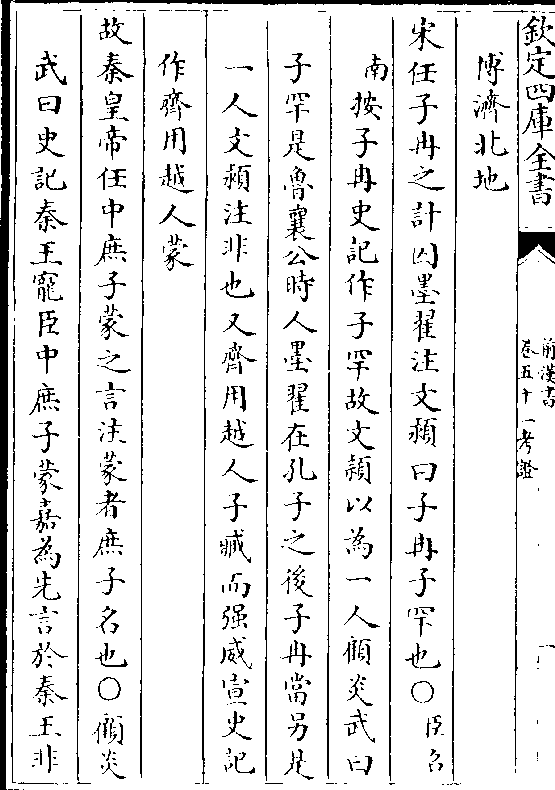 欽定四庫全書
前漢書
卷五十一考證
一
博濟北地
宋任子冉之計囚墨翟注文頴曰子冉子罕也○臣召
南按子冉史記作子罕故文頴以為一人顧炎武曰
子罕是魯襄公時人墨翟在孔子之後子冉當另是
一人文頴注非也又齊用越人子臧而强威宣史記
作齊用越人蒙
故秦皇帝任中庶子蒙之言注蒙者庶子名也○顧炎
武曰史記秦王寵臣中庶子蒙嘉為先言於秦王非